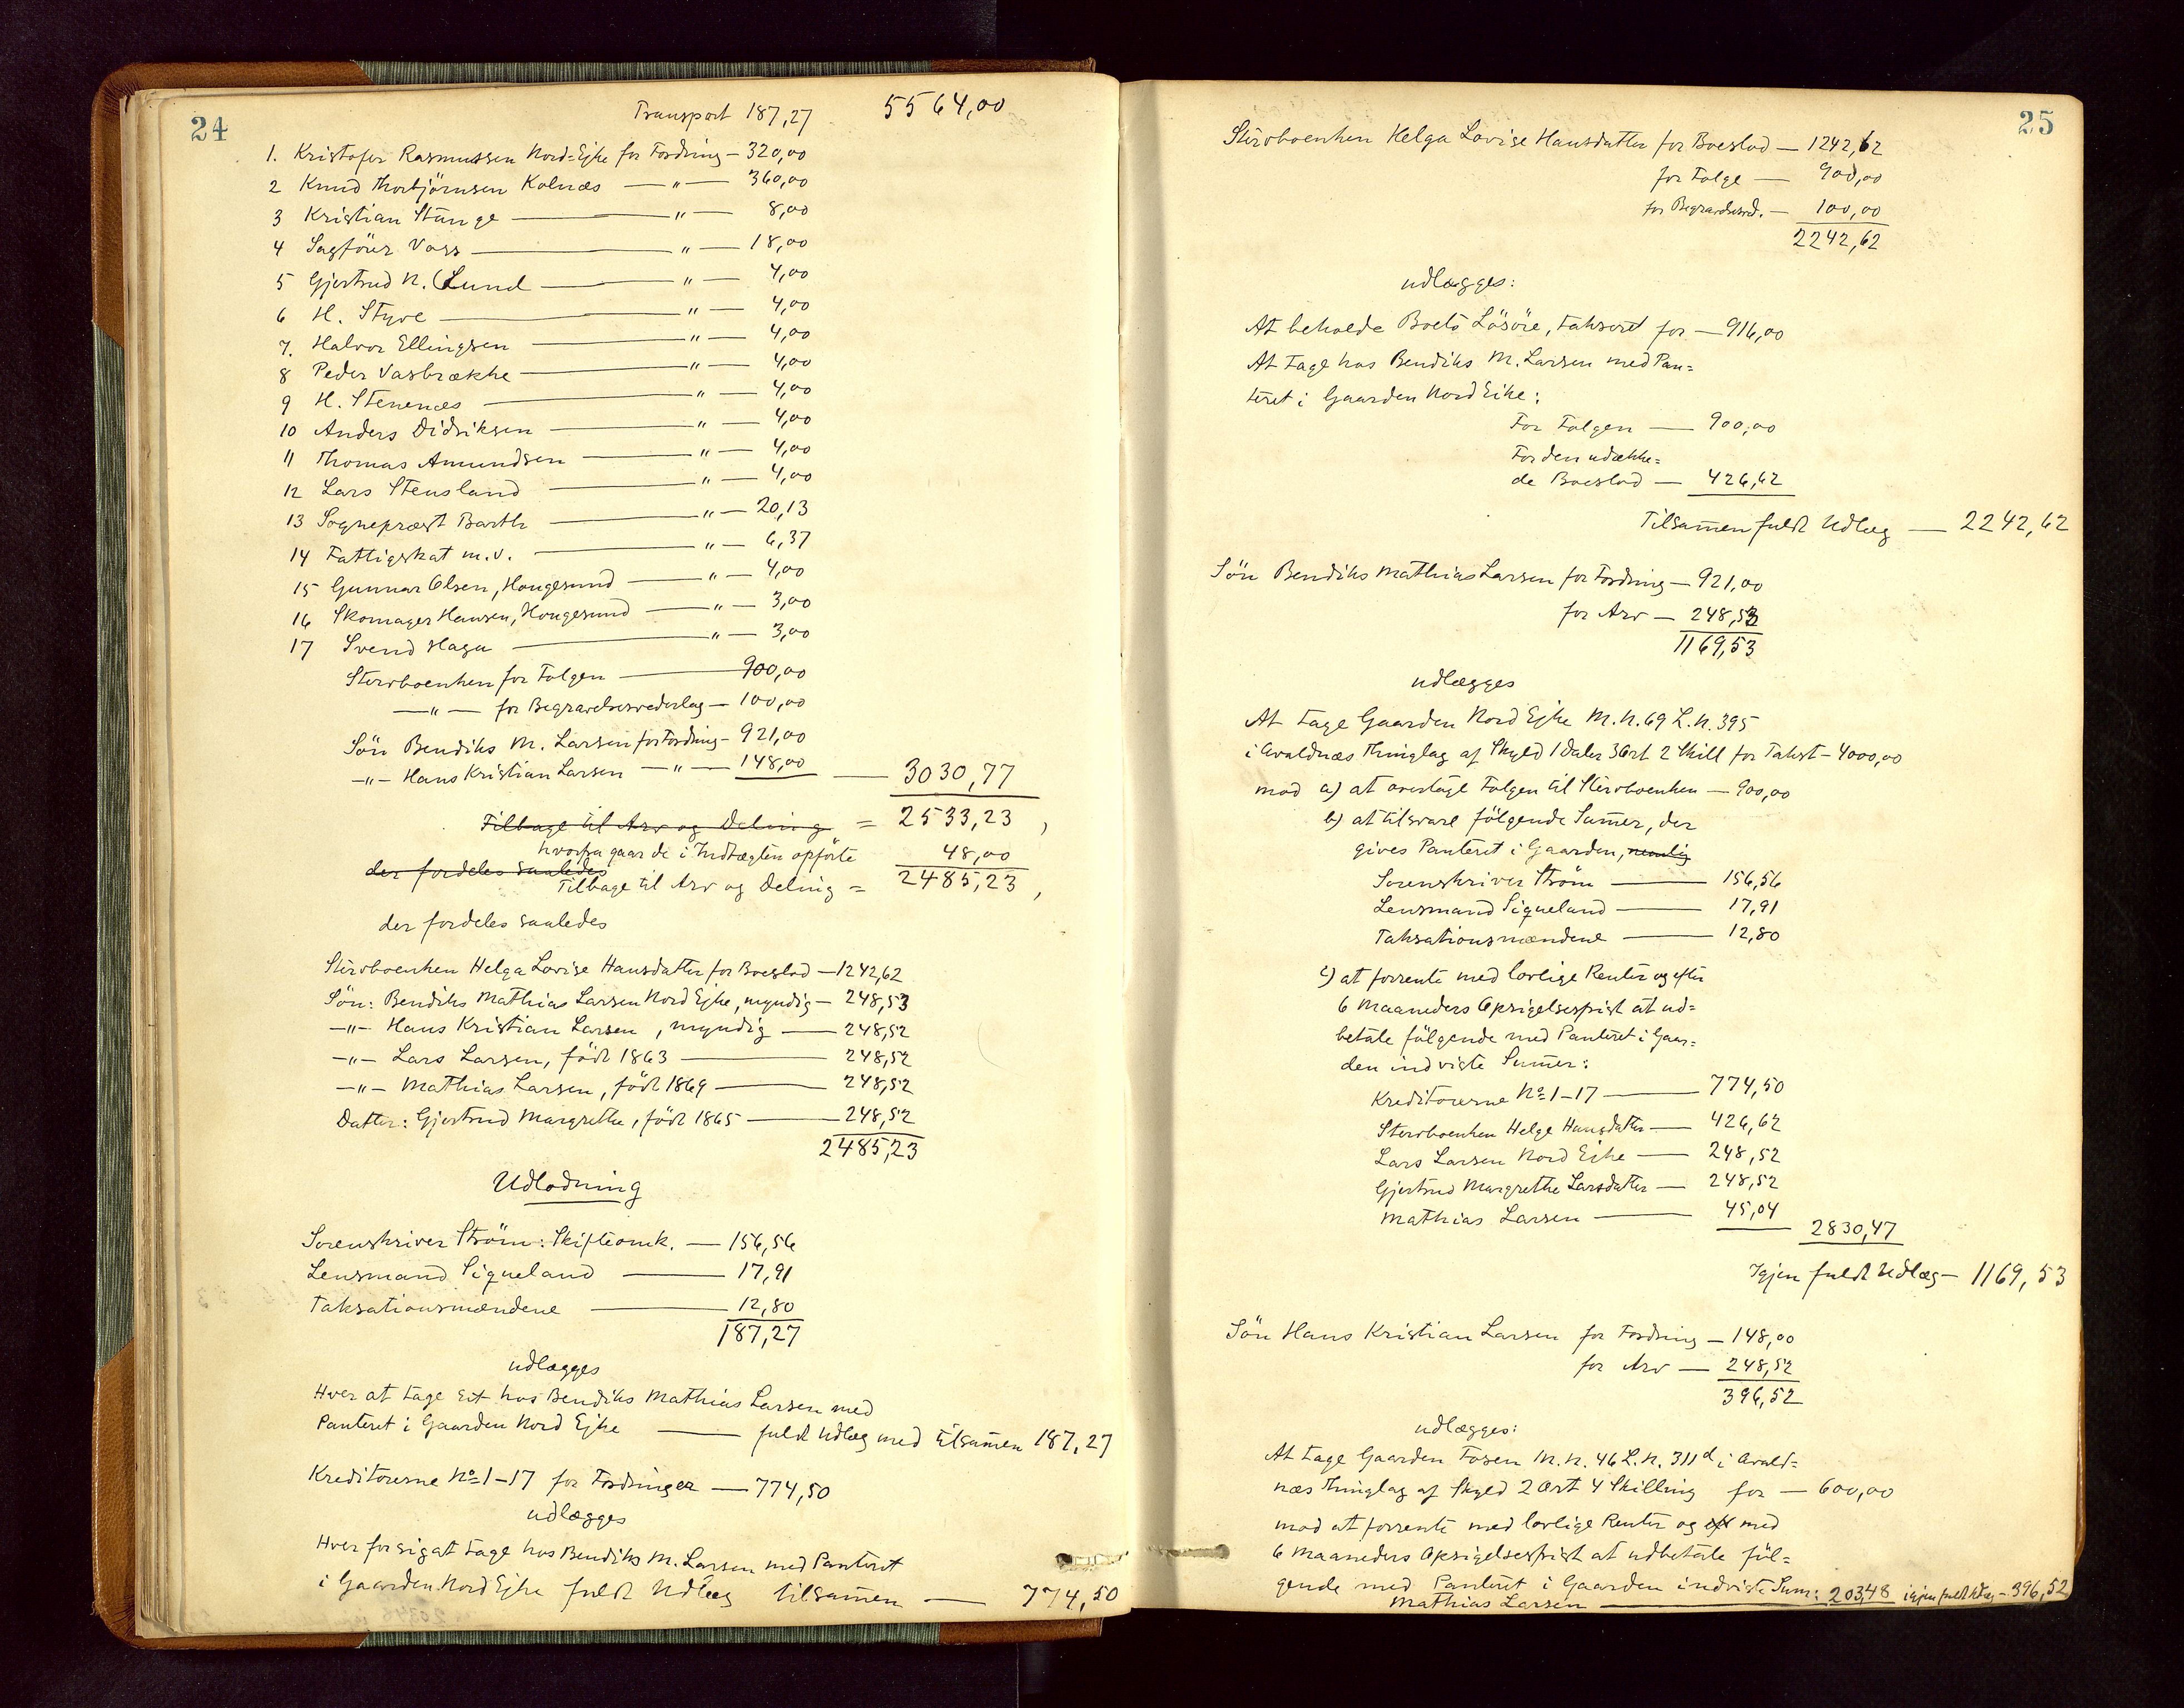 24
Transport 187,27 5564,00
1. Kristofer Rasmussen Nord-Ejke for Fordring — 320,00
2 Knud Thorbjörnsen Kolnæs — " — 360,00
3 Kristian Stange — " — 8,00
4 Sagförer Voss — " — 18,00
5 Gjertrud N. Lund — " — 4,00
6 H. Styve — " — 4,00
7. Halvor Ellingsen — " — 4,00
8 Peder Vasbrække — " — 4,00
9 H. Stenenæs — " — 4,00
10 Anders Didriksen — " — 4,00
11 Thomas Amundsen — " — 4,00
12 Lars Stensland — " — 4,00
13 Sognepræst Barth — " — 20,13
14 Fattigskat m.v. — " — 6,37
15 Gunnar Olsen, Hougesund — " — 4,00
16 Skomager Hansen, Hougesund — " — 3,00
17 Svend Haga — " — 3,00
Stervboenken for Folgen — 900,00
— " — for Begravelsesvederlag — 100,00
Sön Bendiks M. Larsen for Fordring - 921,00
-"- Hans Kristian Larsen — " — 148,00 — 3030,77
Tilbage til Arv og Deling = 2533,23,
hvorfra gaar de i Indtægten opförte 48,00
der fordeles saaledes
Tilbage til Arv og Deling = 2485,23,
der fordeles saaledes
Stervboenken Helga Lovise Hansdatter for Boeslod — 1242,62
Sön: Bendiks Mathias Larsen Nord Ejke, myndig — 248,53
-"- Hans Kristian Larsen, myndig — 248,52
-"- Lars Larsen, födt 1863 — 248,52
-"- Mathias Larsen, födt 1869 — 248,52
Datter: Gjertrud Margrethe, födt 1865 — 248,52
2485,23
Udlodning
Sorenskriver Ström: Skifteomk. — 156,56
Lensmand Siqueland — 17,91
Taksationsmændene — 12,80
187,27
udlægges
Hver at tage sit hos Bendiks Mathias Larsen med
Panteret i Gaarden Nord Ejke — fuldt Udlæg med tilsamen 187,27
Kreditorerne No 1-17 for Fordringer — 774,50
udlægges
Hver for sig at tage hos Bendiks M. Larsen med Panteret
i Gaarden Nord Ejke fuldt Udlæg tilsamen — 774,50
25
Stervboenken Helga Lovise Hansdatter for Boeslod — 1242,62
for Folge — 900,00
for Begravelsesved. — 100,00
2242,62
udlægges:
At beholde Boets Lösöre, takseret for — 916,00
At tage hos Bendiks M. Larsen med Pan=
teret i Gaarden Nord Eike:
For Folgen — 900,00
For den udække=
de Boeslod — 426,62
Tilsamen fuldt Udlæg — 2242,62
Sön Bendiks Mathias Larsen for Fordring — 921,00
for Arv — 248,53
1169,53
udlægges
At tage Gaarden Nord Ejke M.N. 69 L.N. 395
i Avaldnæs Thinglag af Skyld 1 Daler 3 Ort 2 Skill for Takst — 4000,00
mod a) at overtage Folgen til Stervboenken — 900,00
b) at tilsvare fölgende Sumer, der
gives Panteret i Gaarden, nemlig
Sorenskriver Ström — 156,56
Lensmand Siqueland — 17,91
Taksationsmændene — 12,80
c) at forrente med lovlige Renter og efter
6 Maaneders Opsigelsesfrist at ud=
betale fölgende med Panteret i Gaar=
den indviste Sumer:
Kreditorerne No 1-17 — 774,50
Stervboenken Helge Hansdatter — 426,62
Lars Larsen Nord Ejke — 248,52
Gjertrud Margrethe Larsdatter — 248,52
Mathias Larsen — 45,04
2830,47
Igjen fuldt Udlæg — 1169,53
Sön Hans Kristian Larsen for Fordring — 148,00
for Arv — 248,52
396,52
udlægges:
At tage Gaarden Fosen M.N. 46 L.N. 311d i Avald=
næs Thinglag af Skyld 2 Ort 4 Skilling for — 600,00
mod at forrente med lovlige Renter og eft med
6 Maaneders Opsigelsesfrist at udbetale föl=
gende med Panteret i Gaarden indviste Sum:
Mathias Larsen — 203,48 igjen fuldt Udlæg — 396,52